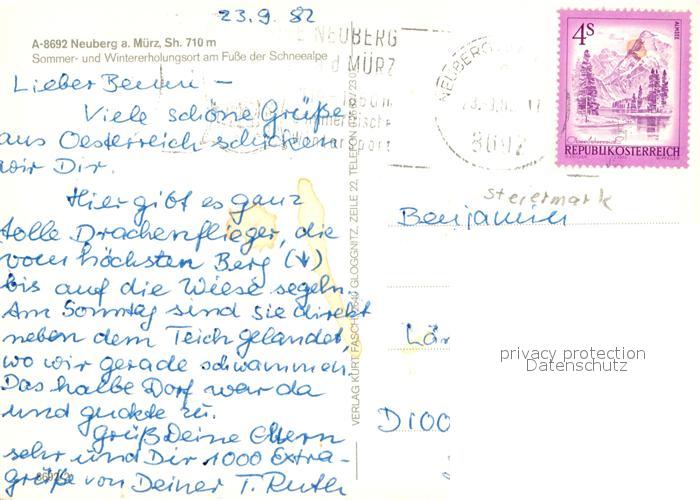 23.9.82
A-8692 Neuberg a. Mürz, Sh. 710 m
Sommer- und Wintererholungsort am Fuße der Schneealpe
Lieber Benni –
Viele schöne Grüße
aus Oesterreich schicken
wir Dir.
Hier gibt es ganz
tolle Drachenflieger, die
vom höchsten Berg (↓)
bis auf die Wiese segeln.
Am Sonntag sind sie direkt
neben dem Teich gelandet,
wo wir gerade schwammen.
Das halbe Dorf war da
und guckte zu.
Grüß Deine Eltern
sehr und Dir 1000 Extra-
grüße von Deiner T. Ruth
VERLAG KURT FASCHING, 2640 GLOGGNITZ, ZEILE 22, TELEFON
NEUBERG
MÜRZ
NEUBERG
8692
4s
ALMSEE
REPUBLIK ÖSTERREICH
Steiermark
Benjamin
Lär
D100
privacy protection
Datenschutz